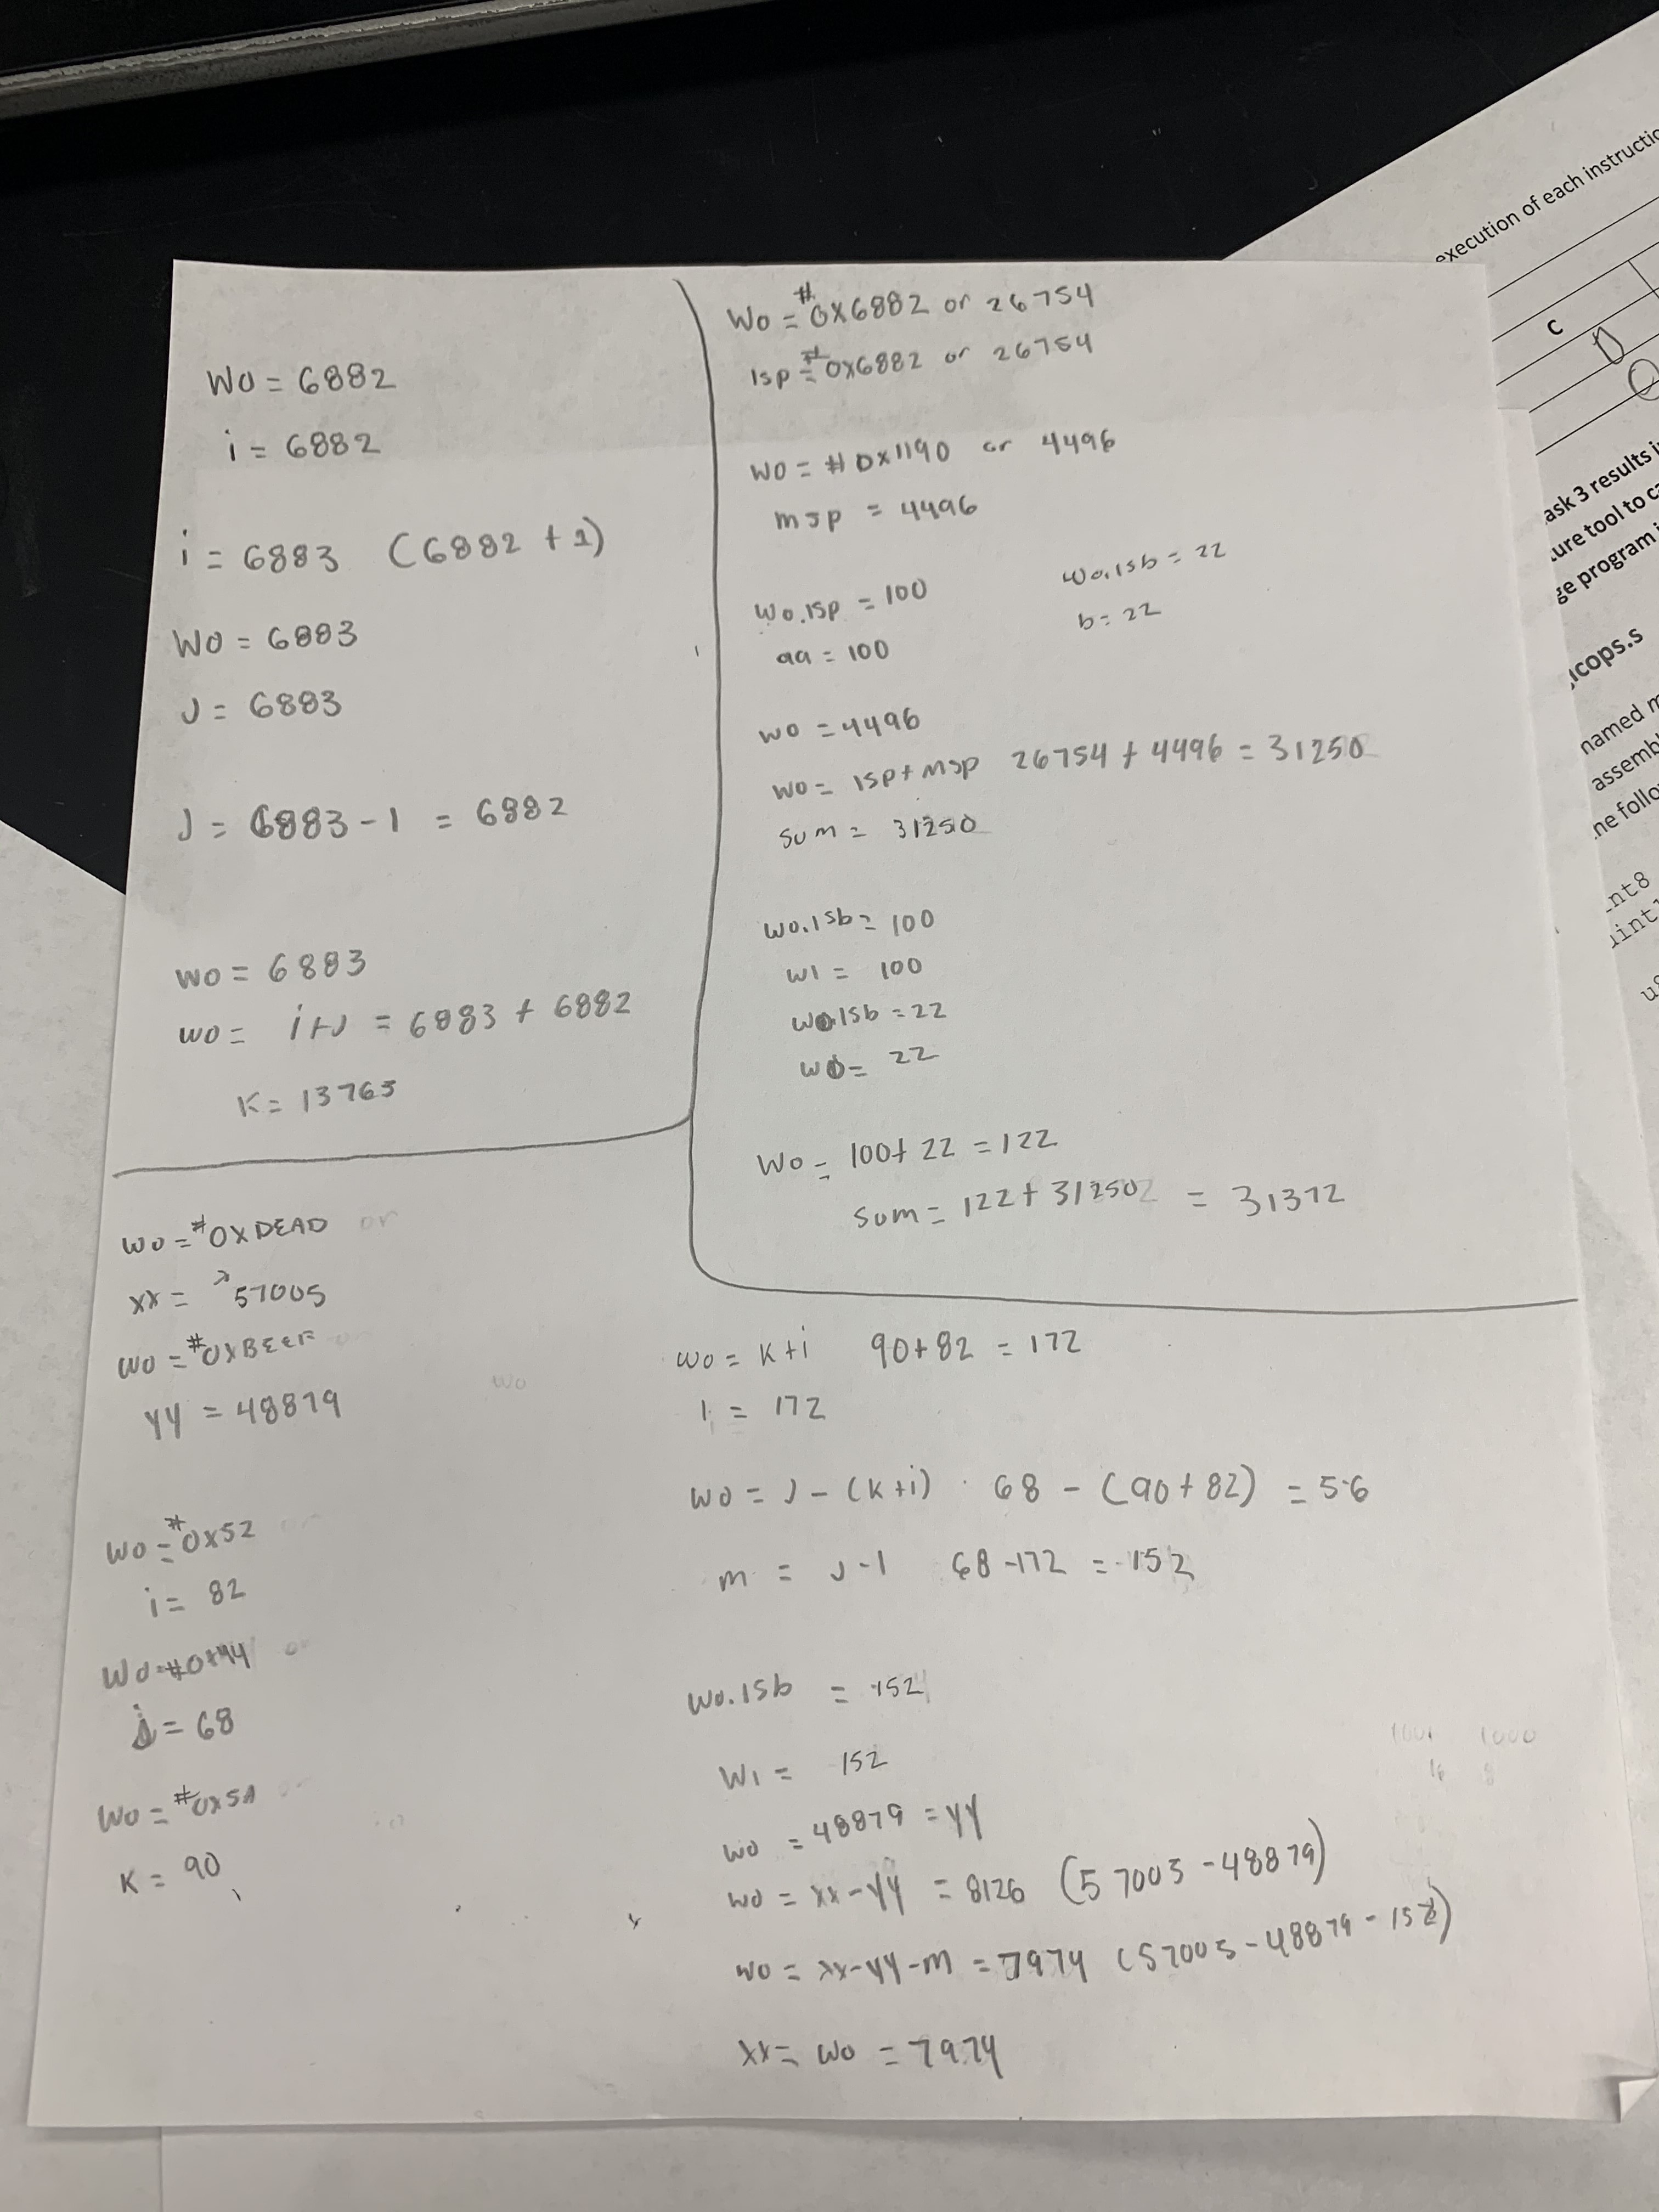 W0 = 6882
i = 6882
i = 6883 (6882 + 1)
W0 = 6883
J = 6883
J = 6883 - 1 = 6882
W0 = 6883
W0 = i+J = 6883 + 6882
K = 13765
W0 = #0x6882 or 26754
lsp = #0x6882 or 26754
W0 = #0x1190 or 4496
msp = 4496
W0.lsp = 100
aa = 100
W0.lsb = 22
b = 22
W0 = 4496
W0 = lsp + msp 26754 + 4496 = 31250
sum = 31250
W0.lsb = 100
W1 = 100
W0.lsb = 22
W0 = 22
W0 = 100 + 22 = 122
sum = 122 + 31250 = 31372
W0 = #0xDEAD or
xx = 57005
W0 = #0xBEEF or
yy = 48879
W0
W0 = #0x52 or
i = 82
W0 = #0x44 or
j = 68
W0 = #0x5A or
K = 90
W0 = K+i 90+82 = 172
l = 172
W0 = J - (K+i) 68 - (90+82) = 56
m = J - l 68 - 172 = 152
W0.lsb = 152
W1 = 152
W0 = 48879 = yy
W0 = xx - yy = 8126 (57005 - 48879)
W0 = xx-yy-m = 7974 (57005 - 48879 - 152)
xx = W0 = 7974
execution of each instructio
C
ask 3 results i
ure tool to ca
ge program i
icops.s
named m
assembl
ne follo
nt8
uint